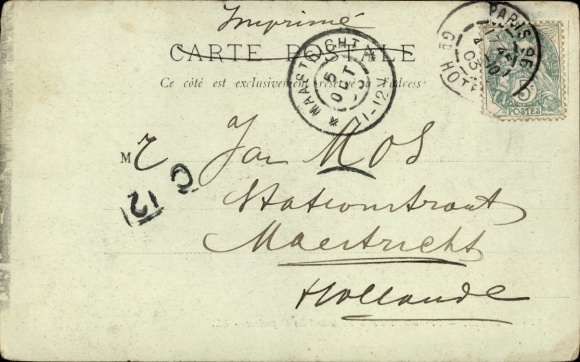 Imprimé
CARTE POSTALE
Ce côté est exclusivement réservé à l'adresse
PARIS 96
Gᴱ HOT
03
MAASTRICHT
5 OCT
11-12V
5
POSTES
Mr Jan MOS
Stationstraat
Maestricht
Hollande
C 12